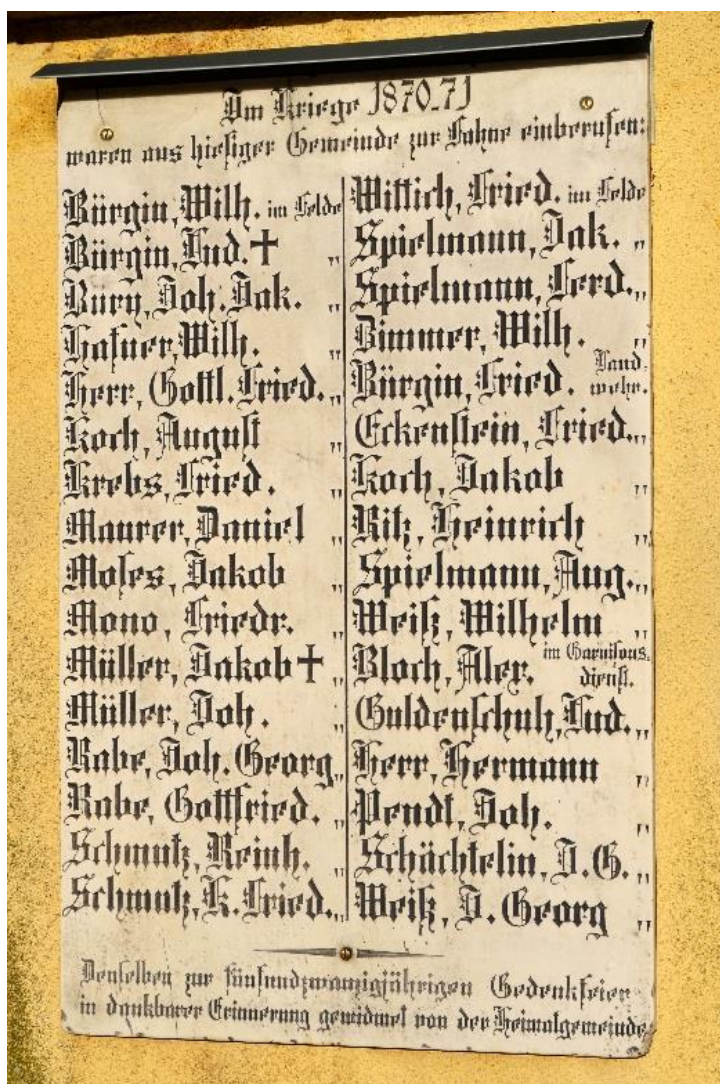 Im Kriege 1870-71
waren aus hiesiger Gemeinde zur Fahne einberufen:
Bürgin, Wilh. im Felde
Bürgin, Lud. ✝ „
Bury, Joh. Jak. „
Hafner, Wilh. „
Herr, Gottl. Fried. „
Koch, August „
Krebs, Fried. „
Maurer, Daniel „
Moses, Jakob „
Mono, Friedr. „
Müller, Jakob ✝ „
Müller, Joh. „
Rabe, Joh. Georg „
Rabe, Gottfried. „
Schmutz, Reinh. „
Schmutz, K. Fried. „
Wittich, Fried. im Felde
Spielmann, Jak. „
Spielmann, Ferd. „
Zimmer, Wilh. „
Bürgin, Fried. Land-
wehr.
Eckenstein, Fried. „
Koch, Jakob „
Ritz, Heinrich „
Spielmann, Aug. „
Weiß, Wilhelm „
Bloch, Alex. im Garnisons-
dienst.
Guldenschuh, Lud. „
Herr, Hermann „
Pendt, Joh. „
Schächtelin, J. G. „
Weiß, J. Georg „
Denselben zur fünfundzwanzigjährigen Gedenkfeier
in dankbarer Erinnerung gewidmet von der Heimatgemeinde